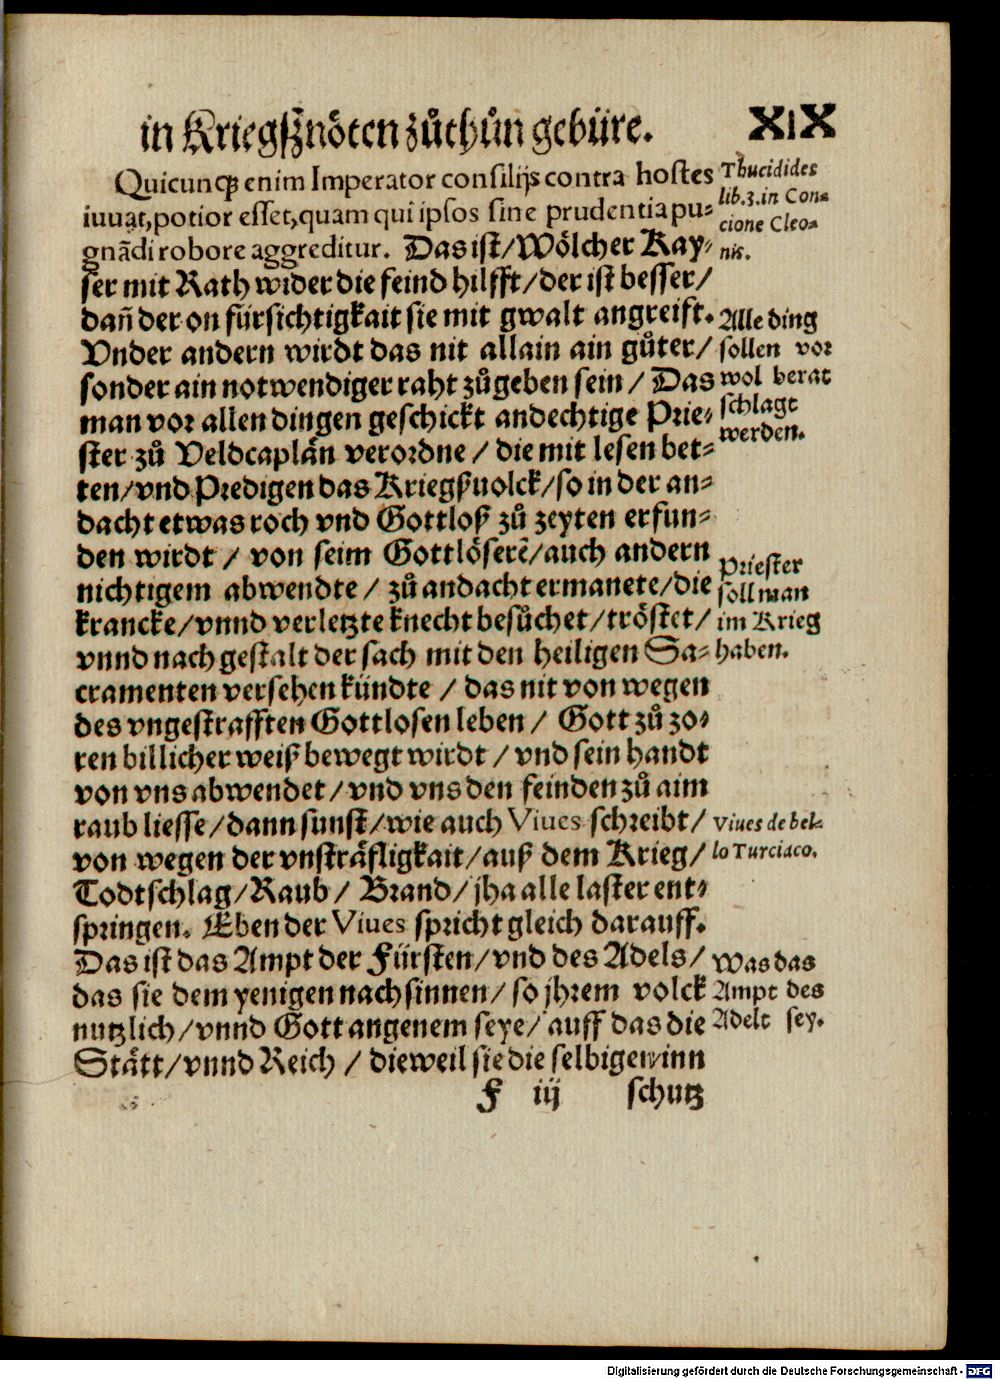 in Kriegsznöten zůthůn gebüre. XIX
Quicunqꝫ enim Imperator consilijs contra hostes
iuuat, potior esset, quam qui ipsos sine prudentia pu-
gnādi robore aggreditur. Das ist/ Wölcher Kay-
ser mit Rath wider die feind hilfft/ der ist besser/
dañ der on fürsichtigkait sie mit gwalt angreift.
Vnder andern wirdt das nit allain ain gůter/
sonder ain notwendiger raht zůgeben sein/ Das
man vor allen dingen geschickt andechtige Prie-
ster zů Veldcaplän verordne/ die mit lesen bet-
ten/ vnd Predigen das Kriegßuolck/ so in der an-
dacht etwas roch vnd Gottloß zů zeyten erfun-
den wirdt/ von seim Gottlöserē/ auch andern
nichtigem abwendte/ zů andacht ermanete/ die
krancke/ vnnd verletzte knecht besůchet/ tröstet/
vnnd nach gestalt der sach mit den heiligen Sa-
cramenten versehen kündte/ das nit von wegen
des vngestrafften Gottlosen leben/ Gott zů zo-
ren billicher weiß bewegt wirdt/ vnd sein handt
von vns abwendet/ vnd vns den feinden zů aim
raub liesse/ dann sunst/ wie auch Viues schreibt/
von wegen der vnsträfligkait/ auß dem Krieg/
Todtschlag/ Raub/ Brand/ jha alle laster ent-
springen. Eben der Viues spricht gleich darauff.
Das ist das Ampt der Fürsten/ vnd des Adels/
das sie dem yenigen nachsinnen/ so jhrem volck
nutzlich/ vnnd Gott angenem seye/ auff das die
Stätt/ vnnd Reich/ dieweil sie die selbigen inn
F iij schutz
Thucidides
lib.3. in Con-
cione Cleo-
nis.
Alle ding
sollen vor
wol berat
schlagt
werden.
Priester
soll man
im Krieg
haben.
Viues de bel-
lo Turciaco.
Was das
Ampt des
Adels sey.
Digitalisierung gefördert durch die Deutsche Forschungsgemeinschaft - DFG